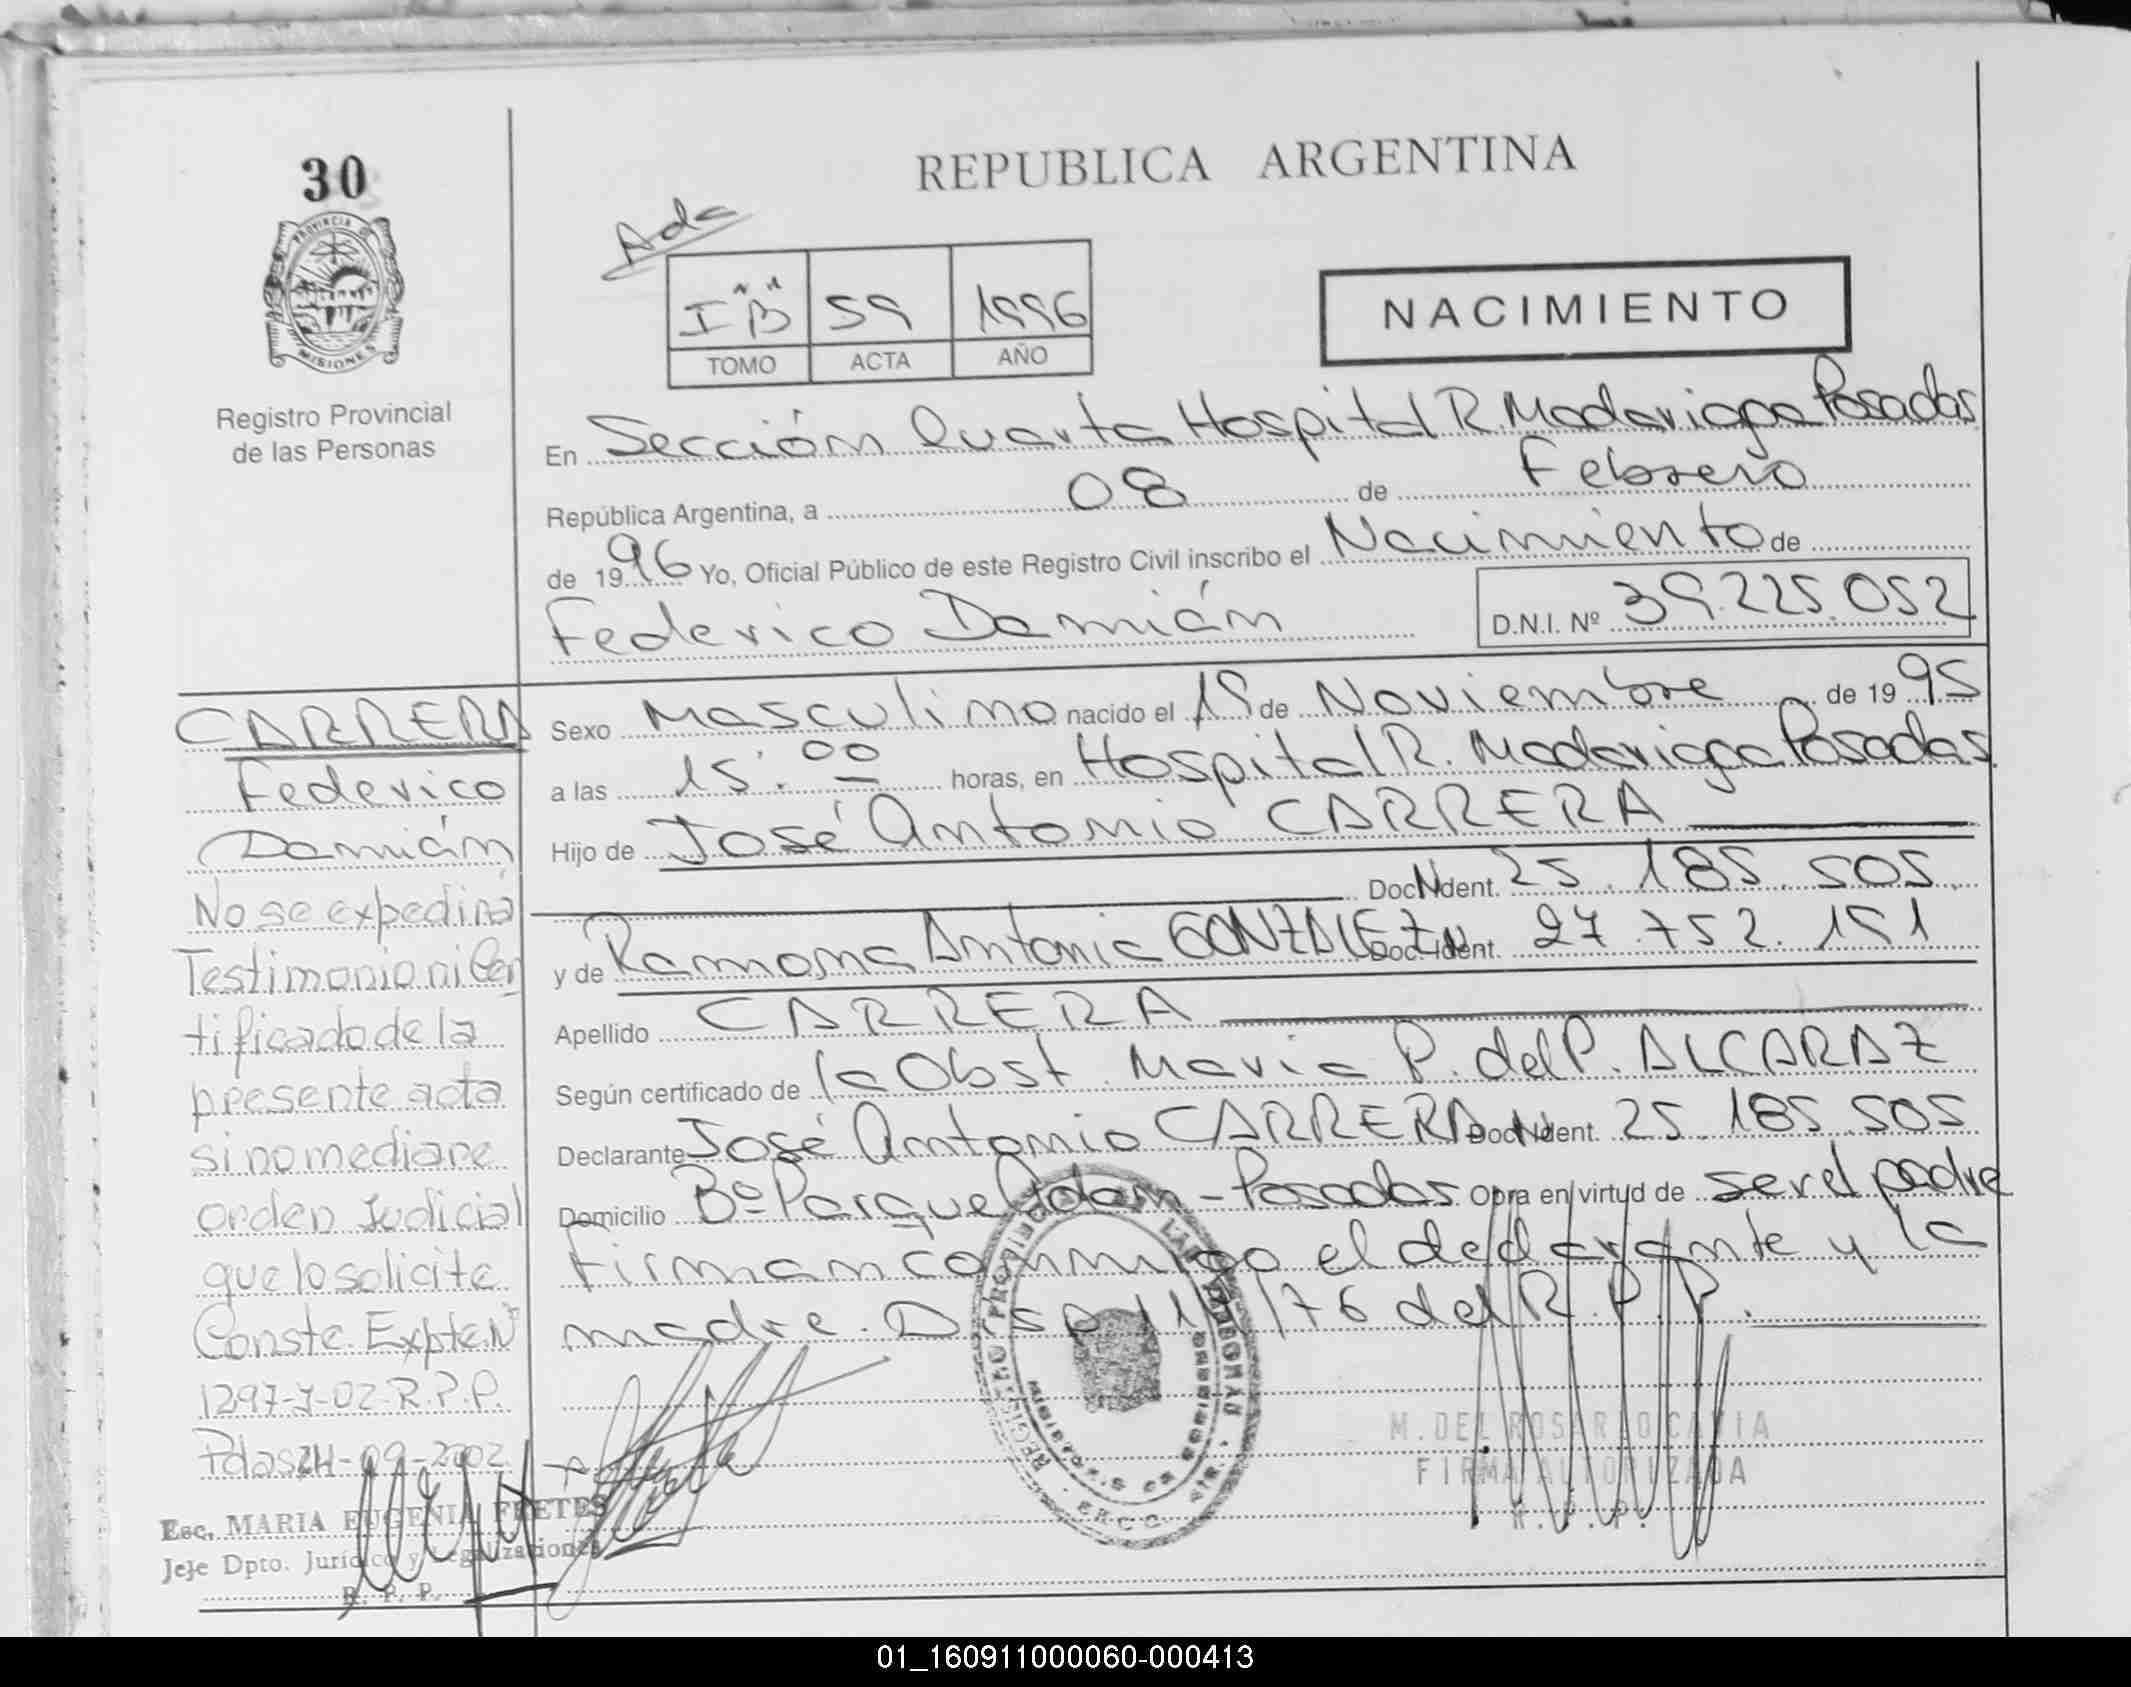 30
PROVINCIA DE
MISIONES
Registro Provincial
de las Personas
REPUBLICA ARGENTINA
Ada
I "B" 59 1996
TOMO ACTA AÑO
NACIMIENTO
En Sección Cuarta Hospital R. Madariaga Posadas
República Argentina, a 08 de Febrero
de 1996 Yo, Oficial Público de este Registro Civil inscribo el Nacimiento de
Federico Damián D.N.I. Nº 39.225.052
Sexo Masculino nacido el 19 de Noviembre de 1995
a las 15:00 horas, en Hospital R. Madariaga Posadas
Hijo de José Antonio CARRERA
Doc. Ident. N 25.185.505
y de Ramona Antonia GONZALEZ Doc. Ident. N 27.752.191
Apellido CARRERA
Según certificado de la Obst. Maria P. del P. ALCARAZ
Declarante José Antonio CARRERA Doc. Ident. N 25.185.505
Domicilio Bº Parque Adam - Posadas Obra en virtud de ser el padre
Firman conmigo el declarante y la
madre. Disp. /76 del R.P.P.
CARRERA
Federico
Damián
No se expedirá
Testimonio ni Cer
tificado de la
presente acta
si no mediare
orden Judicial
que lo solicite
Conste. Expte. Nº
1297-J-02-R.P.P.
Pdas 24-09-2002
Esc. MARIA EUGENIA FRETES
Jefe Dpto. Jurídico y Legalizaciones
R. P. P.
REGISTRO PROVINCIAL DE LAS PERSONAS
M. DEL ROSARIO CAVIA
FIRMA AUTORIZADA
R. P. P.
01_160911000060-000413